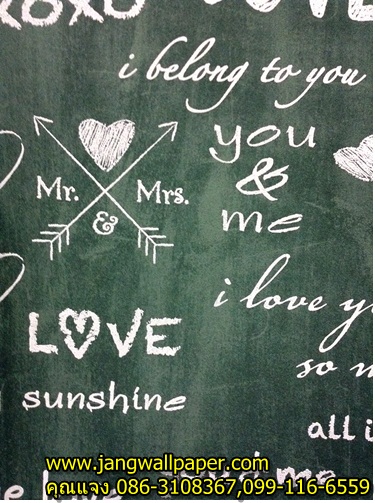 XOXO LOVE
i belong to you
you
&
me
Mr. & Mrs.
LOVE
i love
so
sunshine
all
me
www.jangwallpaper.com
คุณแจง 086-3108367,099-116-6559